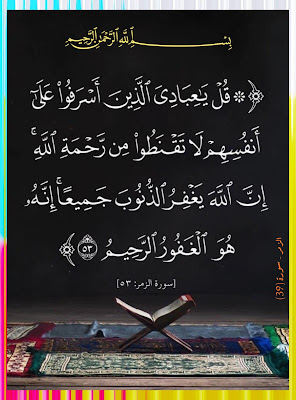 بِسْمِ اللَّهِ الرَّحْمَٰنِ الرَّحِيمِ
﴿۞ قُلْ يَٰعِبَادِىَ ٱلَّذِينَ أَسْرَفُوا۟ عَلَىٰٓ
أَنفُسِهِمْ لَا تَقْنَطُوا۟ مِن رَّحْمَةِ ٱللَّهِ ۚ
إِنَّ ٱللَّهَ يَغْفِرُ ٱلذُّنُوبَ جَمِيعًا ۚ إِنَّهُۥ
هُوَ ٱلْغَفُورُ ٱلرَّحِيمُ ٥٣﴾
[سورة الزمر: ٥٣]
الزمر - سورة (39)